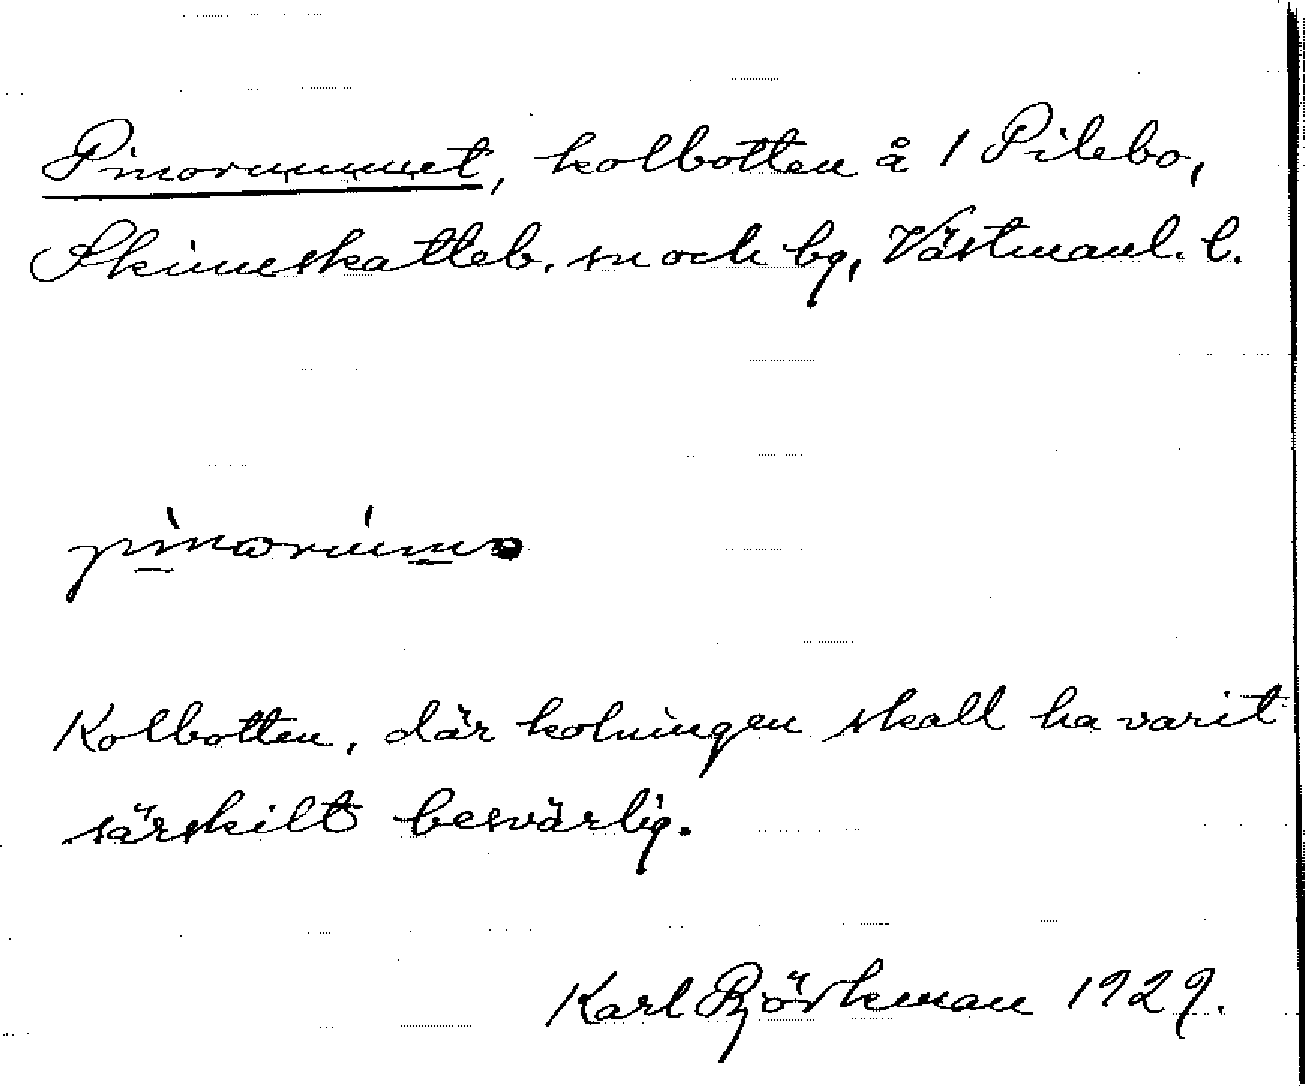 Pinorummet, kolbotten å 1 Pilebo,
Skinnskatteb. sn och bg, Västmanl. l.
Kolbotten, där kolningen skall ha varit
särskilt besvärlig.
Karl Björkman 1929.